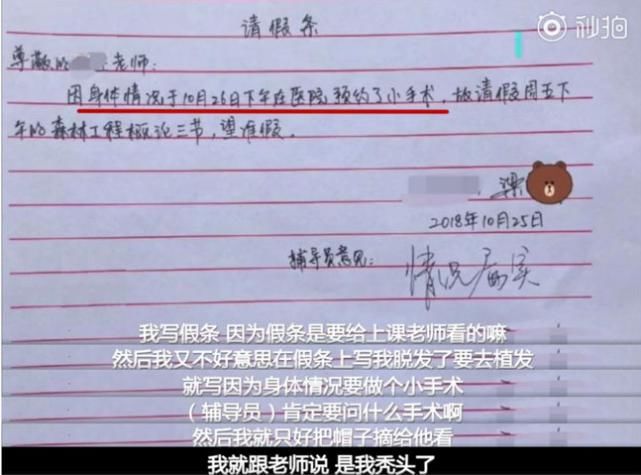 秒拍
请假条
尊敬的 老师:
因身体情况于10月26日下午在医院预约了小手术,故请假周五下
午的森林工程概论三节,望准假。
梁
2018年10月25日
辅导员意见:
情况属实
我写假条 因为假条是要给上课老师看的嘛
然后我又不好意思在假条上写我脱发了要去植发
就写因为身体情况要做个小手术
(辅导员)肯定要问什么手术啊
然后我就只好把帽子摘给他看
我就跟老师说 是我秃头了